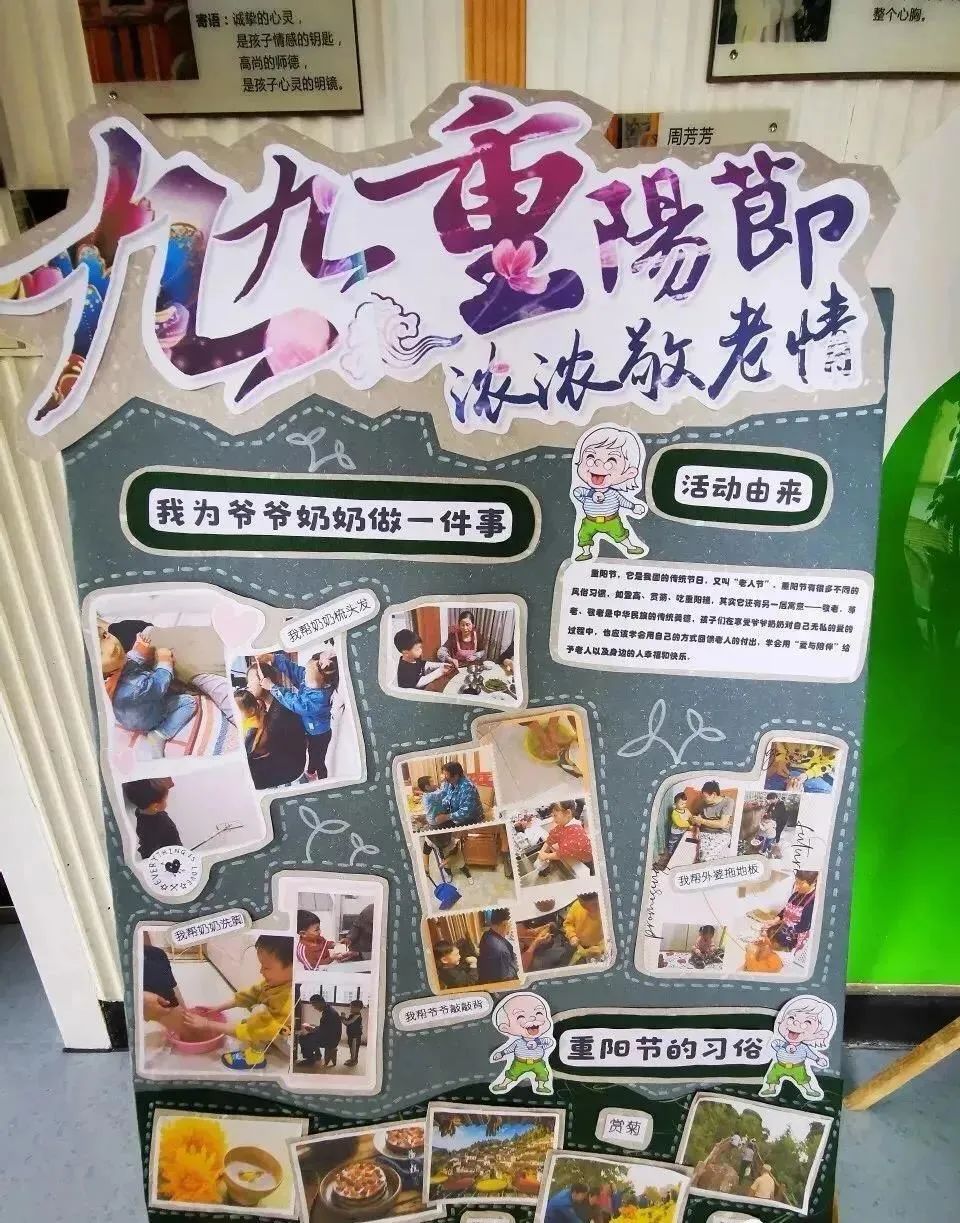 寄语：诚挚的心灵，
是孩子情感的钥匙，
高尚的师德，
是孩子心灵的明镜。
整个心胸。
周芳芳
九九重陽節
浓浓敬老情
我为爷爷奶奶做一件事
活动由来
重阳节，它是我国的传统节日，又叫“老人节”，重阳节有很多不同的
风俗习惯，如登高、赏菊、吃重阳糕，其实它还有另一层寓意——敬老，尊
老、敬老是中华民族的传统美德，孩子们在享受爷爷奶奶对自己无私的爱的
过程中，也应该学会用自己的方式回馈老人的付出，学会用“爱与陪伴”给
予老人以及身边的人幸福和快乐。
我帮奶奶梳头发
EVERYTHING IS LOVE
我帮外婆拖地板
future
我帮奶奶洗脚
我帮爷爷敲敲背
重阳节的习俗
赏菊